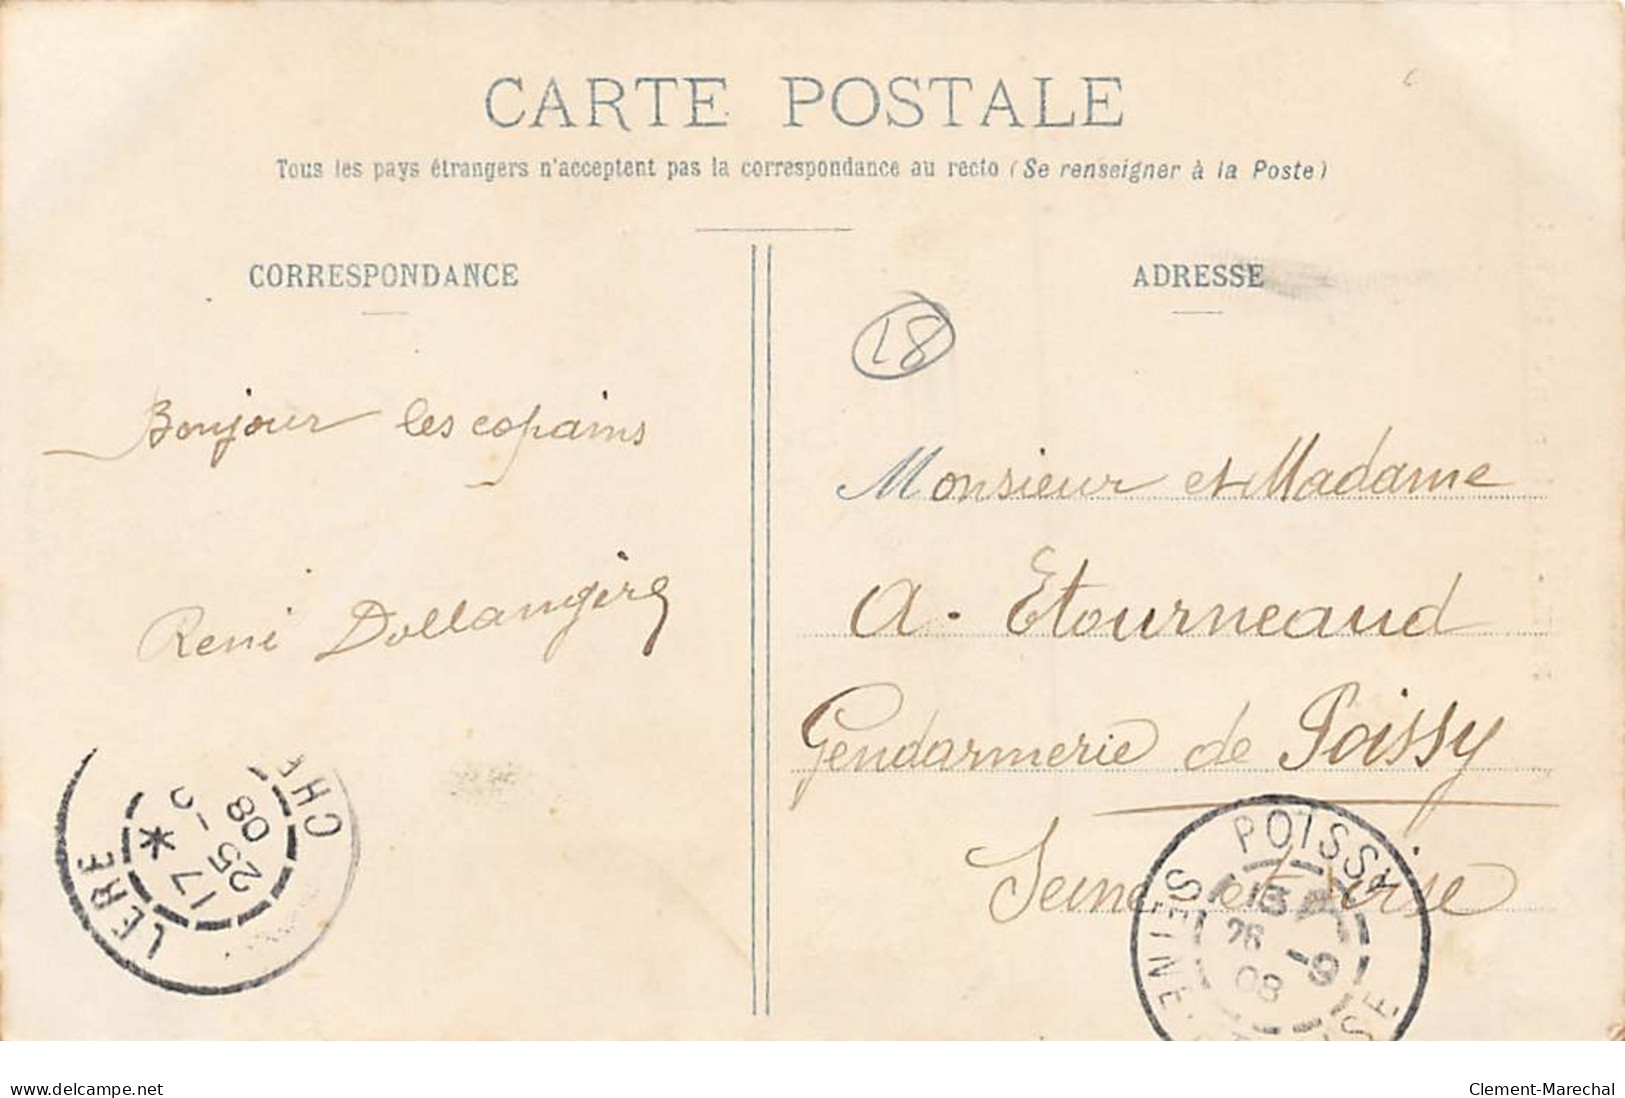 CARTE POSTALE
Tous les pays étrangers n'acceptent pas la correspondance au recto (Se renseigner à la Poste)
CORRESPONDANCE
ADRESSE
18
Bonjour les copains
René Dollangère
Monsieur et Madame
A. Etourneaud
Gendarmerie de Poissy
Seine et Oise
LERE CHE
17 *
25 -9
08
POISSY
SEINE-ET-OISE
26 -9
08
www.delcampe.net
Clement-Marechal